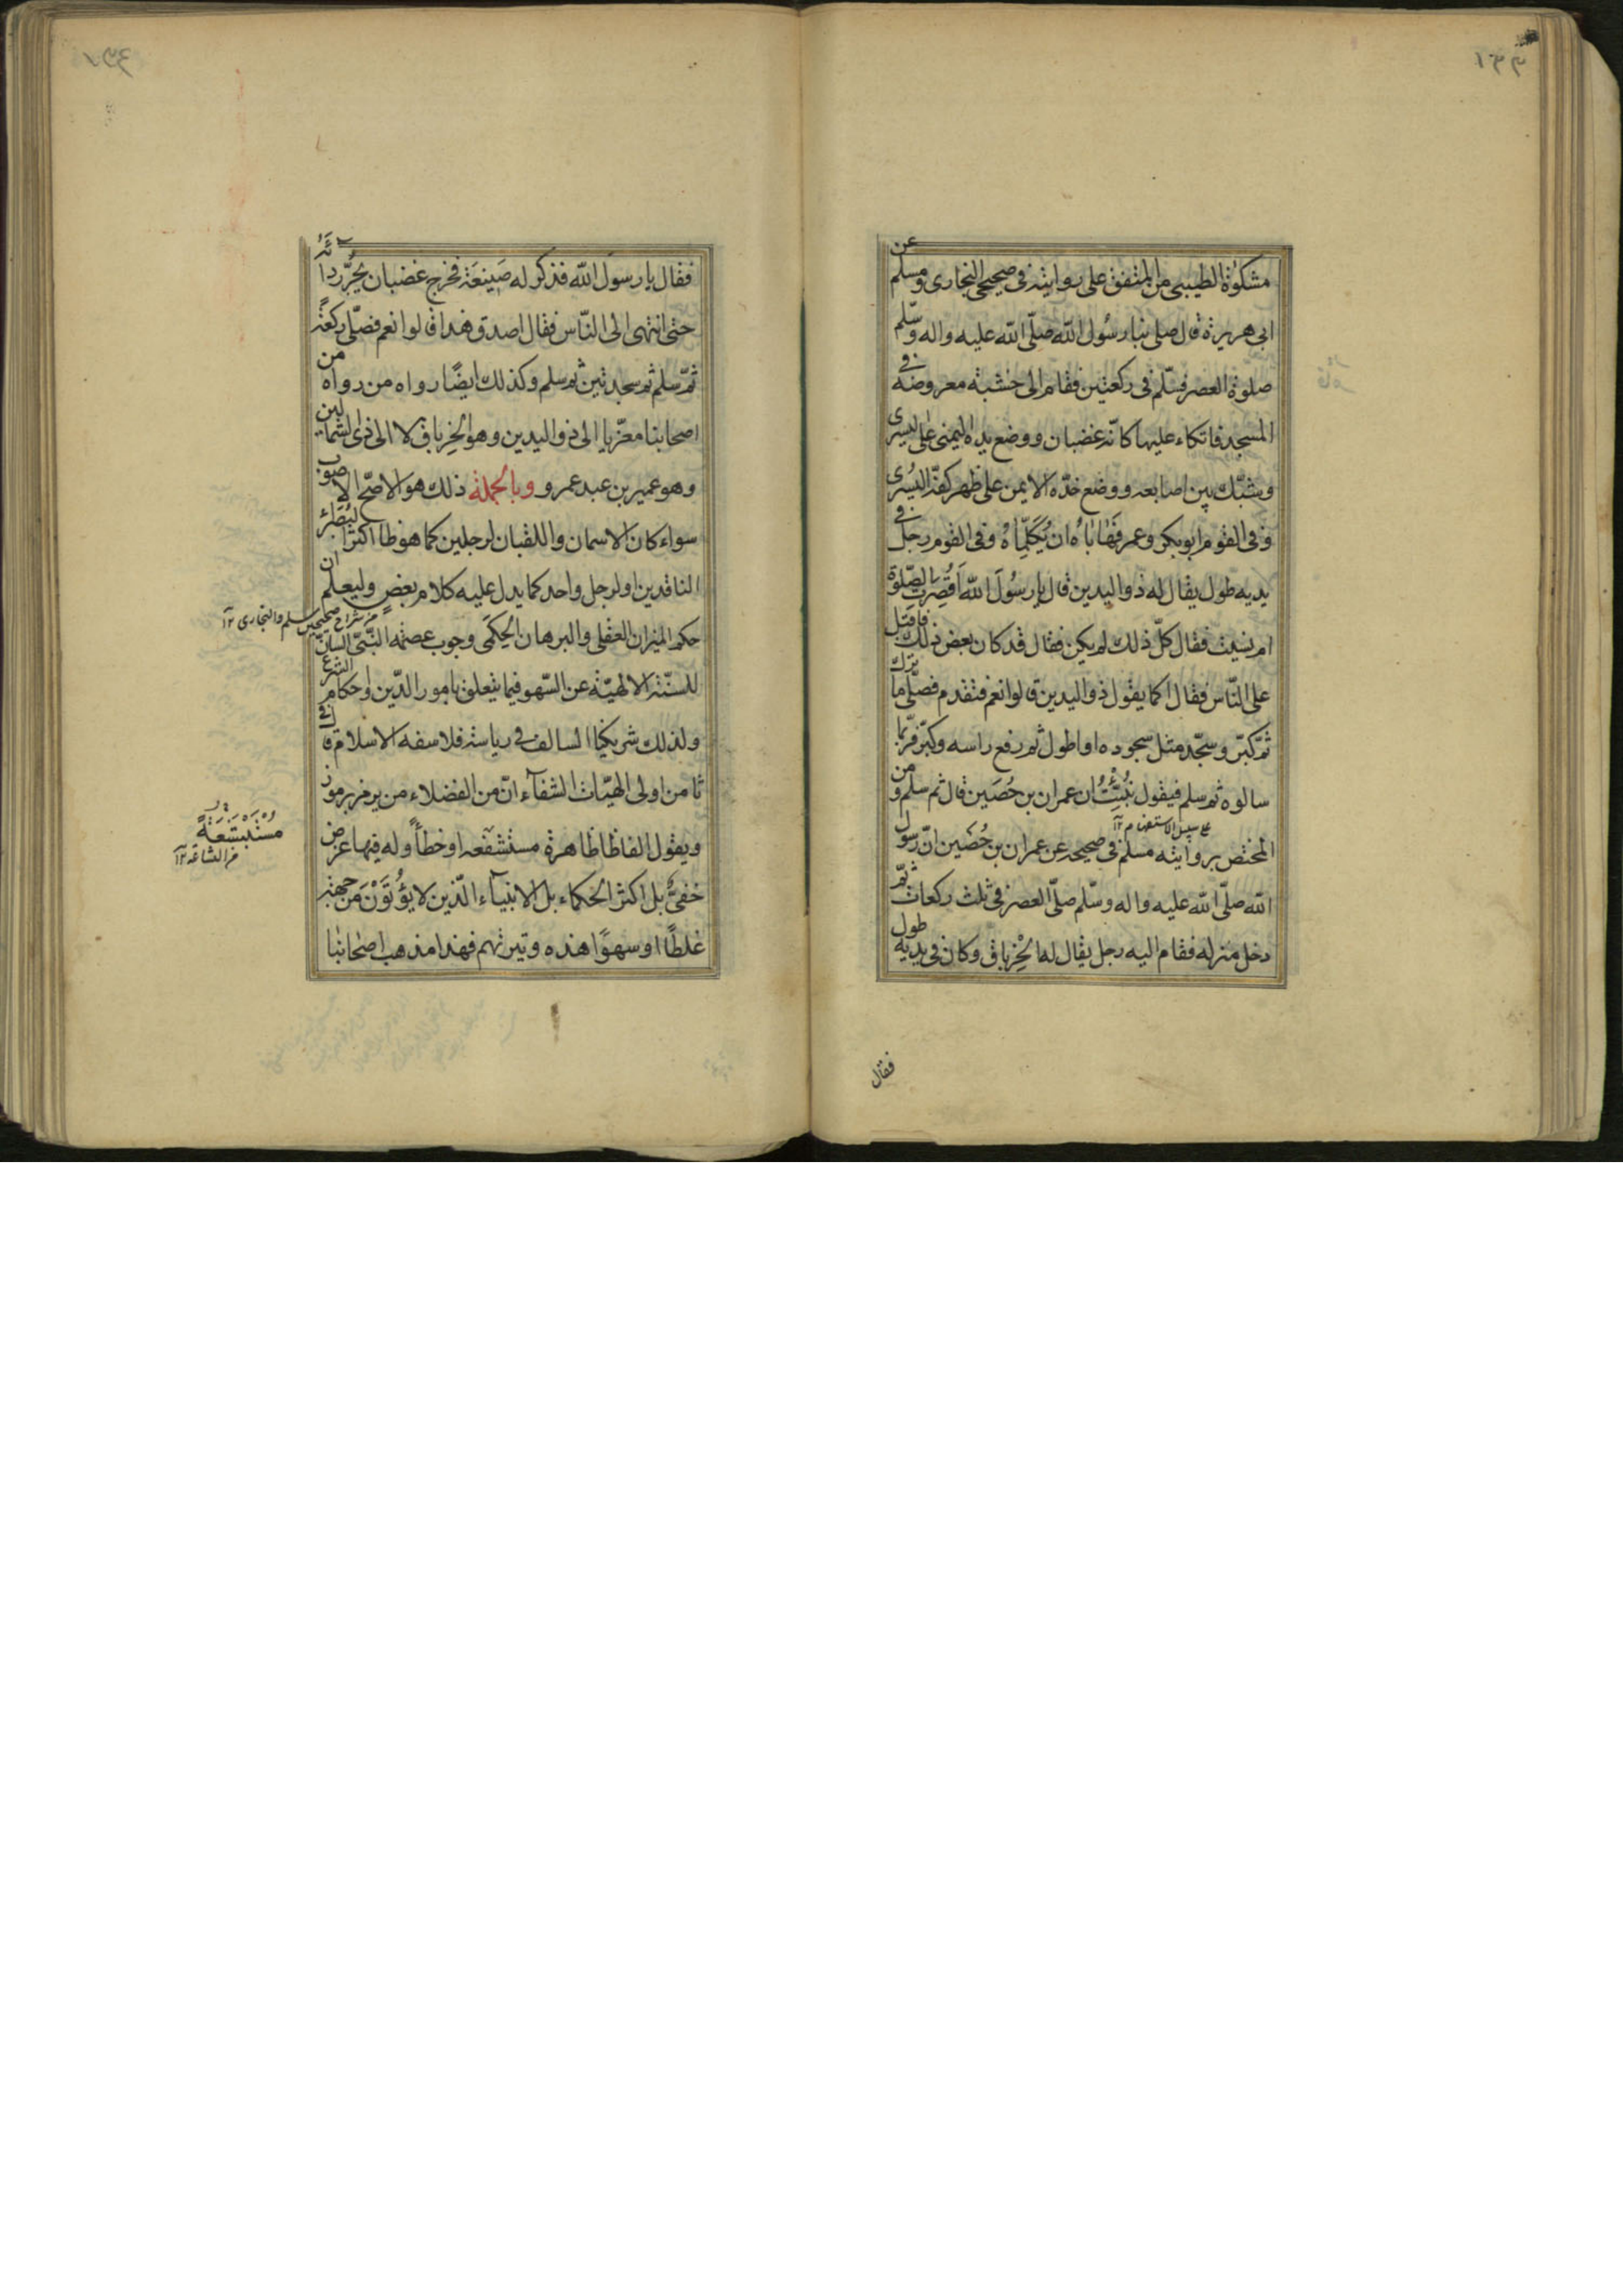 مشكوة الطيبى من المتفق على روايته فى صحيحى البخارى ومسلم عن
ابى هريرة قال صلى بنا رسُول الله صلّى الله عليه واله وسّلم
صلوة العصر فسّلم فى ركعتين فقام الى خشبة معروضة فى
المسجد فاتكاء عليها كانّه غضبان ووضع يده اليمنى على اليسرى
وشبّك بين اصابعه ووضع خدّه الايمن على ظهر كفّه اليُسرى
وفى القوم ابوبكر وعمر فَهَابَاهُ ان يُكَلِّمَاهُ وفى القوم رجل فى
يديه طول يقال له ذو اليدين قال يا رسُولَ الله اَقُصِرَت الصّلوة
ام نسيت فقال كلّ ذلك لم يكن فقال قد كان بعض ذلك فاقبل
على النّاس فقال اكما يقول ذو اليدين قالوا نعم فتقدم فصلّى ما ترك
ثمّ كبّر وسجّد مثل سجوده او اطول ثم رفع راسه وكبّر فربّما
سالوه ثم سلم فيقول نُبِّئْتُ ان عمران بن حُصَين قال ثم سلم و من
على سبيل الاستفهام ١٢
المختص بروايته مسلم فى صحيحه عن عمران بن حُصَين انّ رسول
الله صلّى الله عليه واله وسّلم صلّى العصر فى ثلث ركعات ثمّ
دخل منزله فقام اليه رجل يقال له الخِرْباق وكان فى يديه طول
فقال
فقال يا رسوَل الله فذكر له صَنِيعَه فخرج غضبان يجُرّ رداءَهُ
حتى انتهى الى النّاس فقال اصدق هذا قالوا نعم فصّلى ركعةً
ثمّ سلم ثم سجد تين ثم سلم وكذلك ايضًا رواه من رواه من
اصحابنا معزّيا الى ذو اليدين وهو الخِرباق لا الى ذى الشمالين
وهو عمير بن عبد عمرو وبالجملة ذلك هو الاصّح الاصوب
سواء كان الاسمان واللقبان لرجلين كما هو ظا اكثر النُظار
الناقدين او لرجل واحد كما يدل عليه كلام بعض وليعلم ان
من شراح صحيحين مسلم والبخارى ١٢
حكم الميزان العقلى والبرهان الحِكَمى وجوب عصمة النّبىّ السانّ
للسنّة الالهيّة عن السّهو فيما يتعلق بامور الدّين واحكام الشرع
ولذلك شريكنا السالف فى رياسة فلاسفة الاسلام قال فى
ثامن اولى الهيّات الشفآء انّ من الفضلاء من يرمز برموز
ويقول الفاظا ظاهرة مستشنعه او خطأً وله فيها غرض
مُسْتَبْشَعَةً
من الشناعة ١٢
خفىٌّ بل اكثر الحكماء بل الانبيآء الّذين لا يُؤْتَوْنَ من جهة
غلطًا او سهوًا هذه وتيرتهم فهذا مذهب اصحابنا